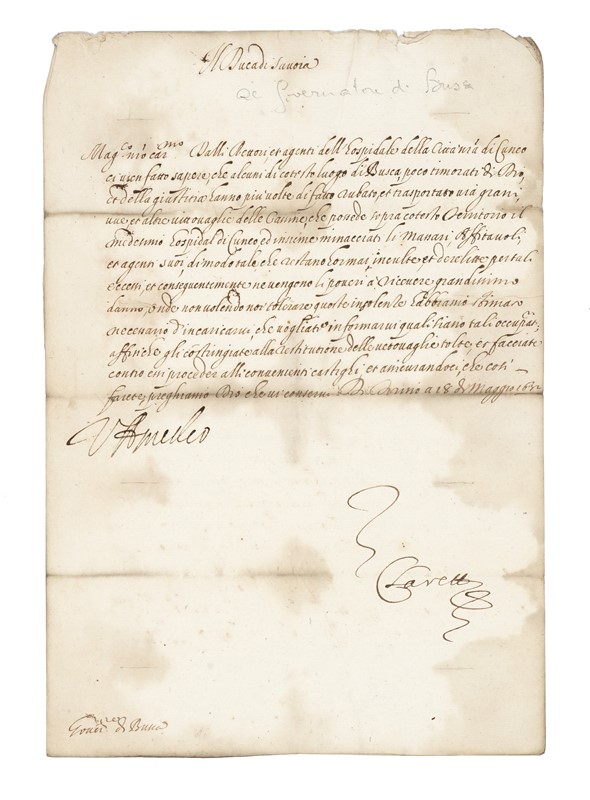 Il Duca di Savoia
al Governatore di Busca
Mag.co n.ro car.mo Dalli Rettori et agenti dell'Hospidale della Città n'ra di Cuneo
ci vien fatto sapere, che alcuni di cotesto luogo di Busca, poco timorati di Dio,
et della giustitia hanno più volte di fatto rubato, et trasportato via grani
uve et altre vittovaglie delle Cassine, che possede sopra cotesto Territorio il
medesimo Hospidal di Cuneo ed insieme minacciati li Massari Affittavoli,
et agenti suoi di modo tale che restano hormai inculte, et derelitte per tali
eccessi, et consequentemente ne vengono li poveri à ricevere grandissimo
danno, onde non volendo noi tolerare queste insolenze habbiamo stimato
necessario d'incaricarvi, che vogliate informarvi quali siano tali occup.ri
affinche gli costringiate alla restitutione delle vittovaglie tolte, et facciate
contro essi proceder alli convenienti castighi, et assicurandoci, che così
farete, preghiamo Dio che vi conservi. Da Torino a 18 di Maggio 1632
V Amedeo
Carett
Gover.re di Busca